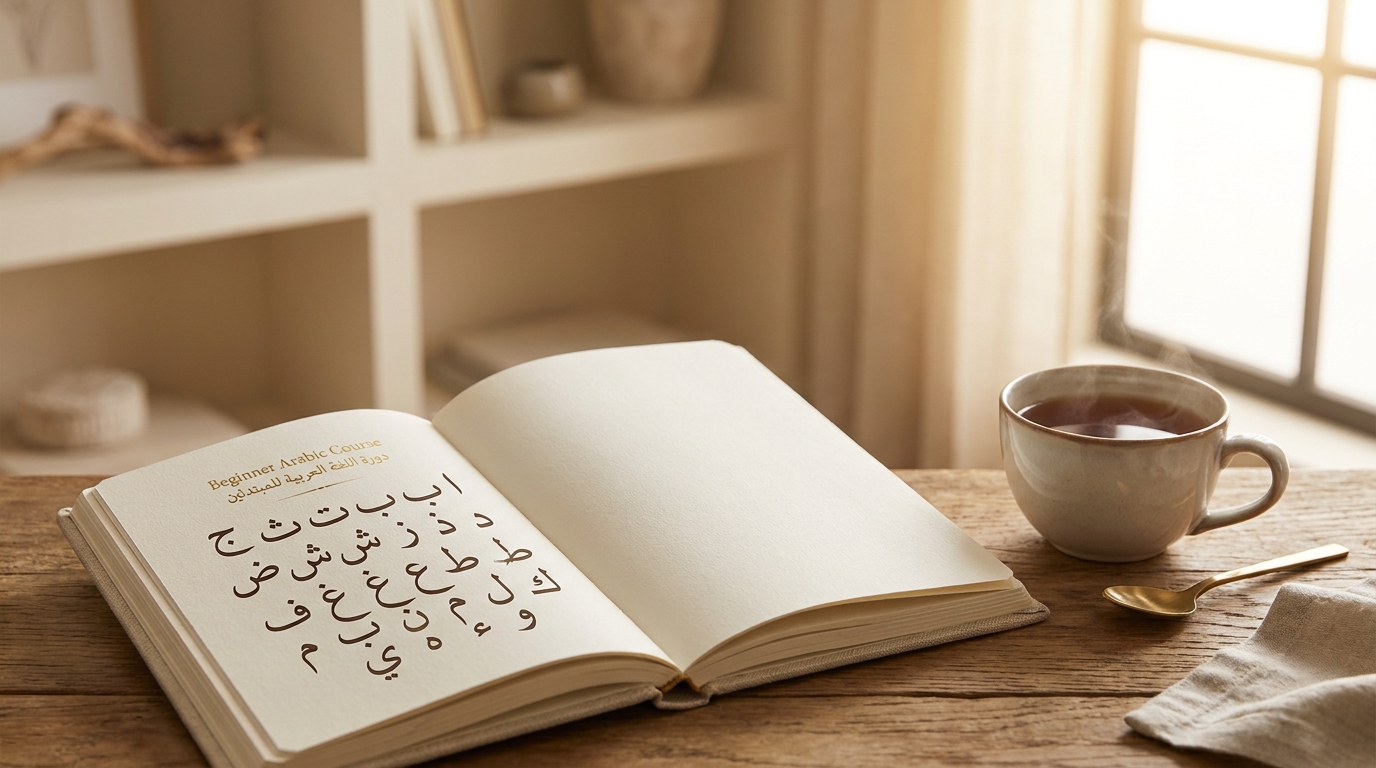 Beginner Arabic Course
دورة اللغة العربية للمبتدئين
ا ب ب ت ث ج
د ذ ز ش ش ض
ط ط ع غ غ ف
ك ل م ن
و ء ه ي م